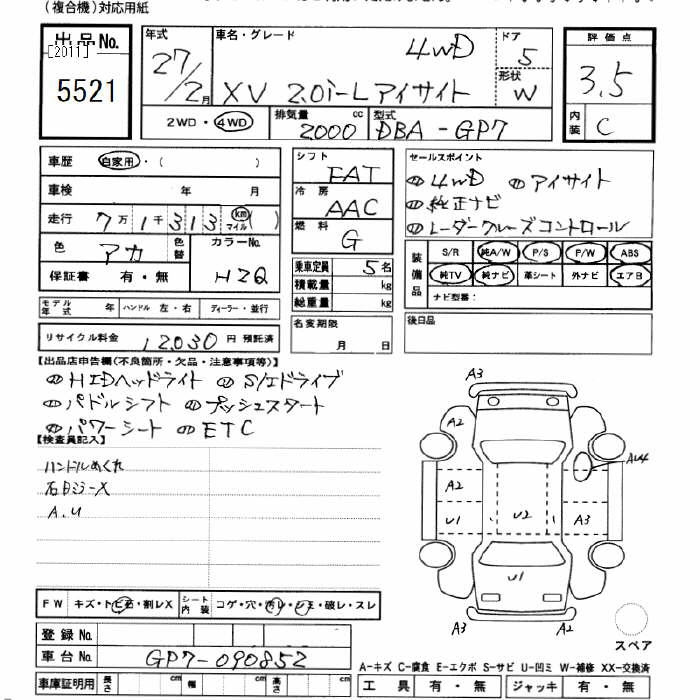 (複合機)対応用紙
出品No.
[2011]
5521
年式
27/2月
車名・グレード
4WD
XV 2.0i-L アイサイト
ドア
5
形状
W
評価点
3.5
内装
C
2WD・4WD
排気量
2000 cc
型式
DBA-GP7
車歴
自家用・( )
車検 年 月
走行 7万1千313 km マイル ( )
色 アカ 色替 カラーNo.
保証書 有・無 HZQ
シフト
FAT
冷房
AAC
燃料
G
乗車定員 5名
積載量 kg
総重量 kg
セールスポイント
4WD アイサイト
純正ナビ
レーダークルーズコントロール
装備品
S/R 純A/W P/S P/W ABS
純TV 純ナビ 革シート 外ナビ エアB
ナビ型番:
モデル年式 年 ハンドル 左・右 ディーラー・並行
リサイクル料金 12030 円 預託済
名変期限
月 日
後日品
【出品店申告欄(不良箇所・欠品・注意事項等)】
HIDヘッドライト S/Iドライブ
パドルシフト プッシュスタート
パワーシート ETC
【検査員記入】
ハンドルめくれ
A.U
A3
A2
AU4
A2
U1
U2
A3
U1
A3
A2
スペア
FW キズ・トビ石・割レX シート内装 コゲ・穴・汚レ・シミ・破レ・スレ
登録No.
車台No. GP7-090852
車庫証明用 長さ cm 幅 cm 高さ cm
A-キズ C-腐食 E-エクボ S-サビ U-凹ミ W-補修 XX-交換済
工具 有・無 ジャッキ 有・無